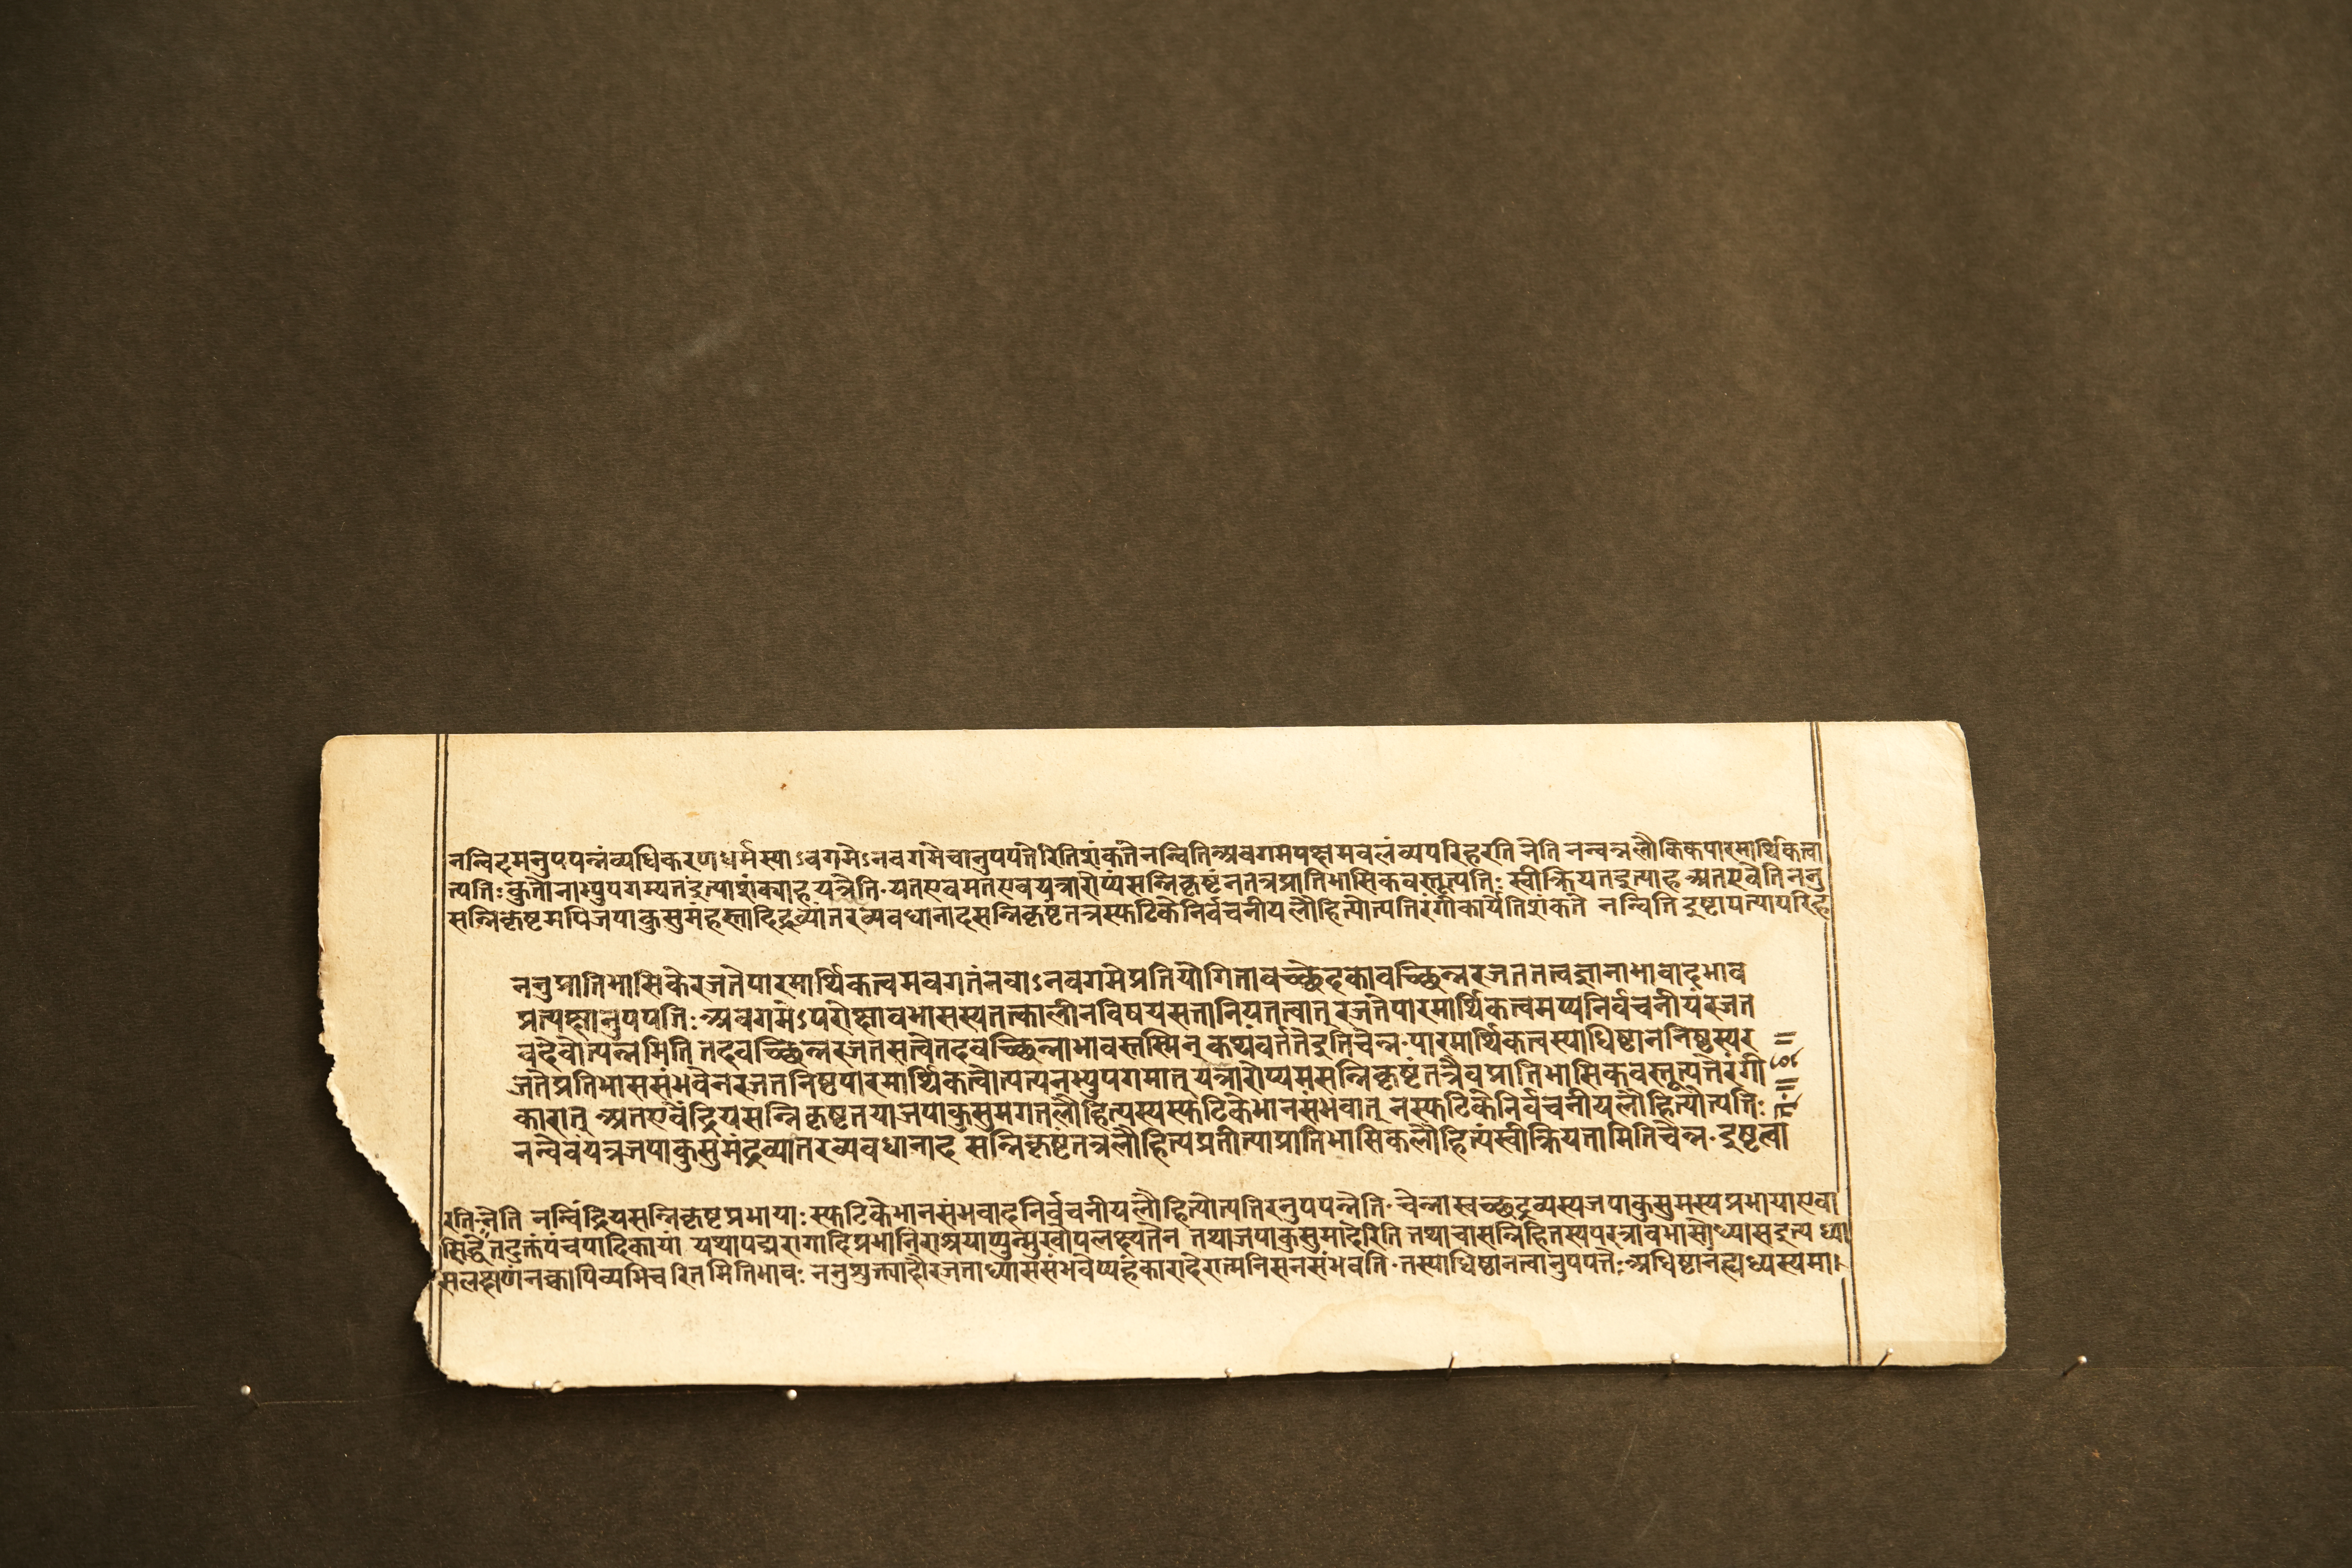 नन्विदमनुपपन्नंव्यधिकरणधर्मस्याऽवगमेऽनवगमेचानुपपत्तेरितिशंकतेनन्वितिअवगमपक्षमवलंव्यपरिहरतिनेति नन्वन्नलौकिकपारमार्थिकत्वा
त्पत्तिःकुतोनाभ्युपगम्यतइत्याशंक्याहयत्रेति·यतएवमतएवयत्रारोप्यंसन्निकृष्टंनतत्रप्रातिभासिकवस्तूत्पत्तिः स्वीक्रियतइत्याहअतएवेतिननु
सन्निकृष्टमपिजपाकुसुमंहस्तादिद्रव्यांतरव्यवधानादसन्निकृष्टंतत्रस्फटिकेनिर्वचनीयलौहित्योत्पत्तिरंगीकार्येतिशंकते नन्विति दृष्टापत्यापरिह
ननुप्रातिभासिकेरजतेपारमार्थिकत्वमवगतंनवाऽनवगमेप्रतियोगितावच्छेदकावच्छिन्नरजततत्वज्ञानाभावादभाव
प्रत्यक्षानुपपत्तिःअवगमेऽपरोक्षावभासस्यतत्कालीनविषयसत्तानियतत्वात्रजतेपारमार्थिकत्वमप्यनिर्वचनीयंरजत
वदेवोत्पन्नमिति तदवच्छिन्नरजतसत्वेतदवच्छिन्नाभावस्तस्मिन्कथंवर्ततेइतिचेन्न·पारमार्थिकत्वस्याधिष्टाननिष्ठस्यर
जतेप्रतिभाससंभवेनरजतनिष्ठपारमार्थिकत्वोत्पत्यनभ्युपगमात्यत्रारोप्यमसन्निकृष्टंतत्रैवप्रातिभासिकवस्तूत्पत्तेरंगी
कारात्अतएवेंद्रियसन्निकृष्टतयाजपाकुसुमगतलौहित्यस्यस्फटिकेभानसंभवात्नस्फटिकेनिर्वचनीयलौहित्योत्पत्तिः
नन्वेवंयत्रजपाकुसुमंद्रव्यांतरव्यवधानाद सन्निकृष्टंतत्रलौहित्यप्रतीत्याप्रातिभासिकंलौहित्यंस्वीक्रियतामितिचेन्न·इष्टत्वा
रतिनेति नन्विंद्रियसन्निकृष्टप्रभायाःस्फटिकेभानसंभवादनिर्वचनीयलौहित्योत्पत्तिरनुपपन्नेति·चेन्नास्वच्छद्रव्यस्यजपाकुसुमस्यप्रभायाएवा
सिद्धेतदुक्तंपंचपादिकायां यथापद्मरागादिप्रभानिराश्रयाप्युन्मुखोपलक्ष्यतेन तथाजपाकुसुमादेरिति तथाचासन्निहितस्यपरत्रावभासोध्यासइत्यध्या
सलक्षणंनक्वापिव्यभिचरितमितिभावः ननुशुक्त्यादौरजताध्याससंभवेप्यहंकारादेरात्मनिसनसंभवति·तस्याधिष्ठानत्वानुपपत्तेःअधिष्ठानंह्यध्यस्यमा